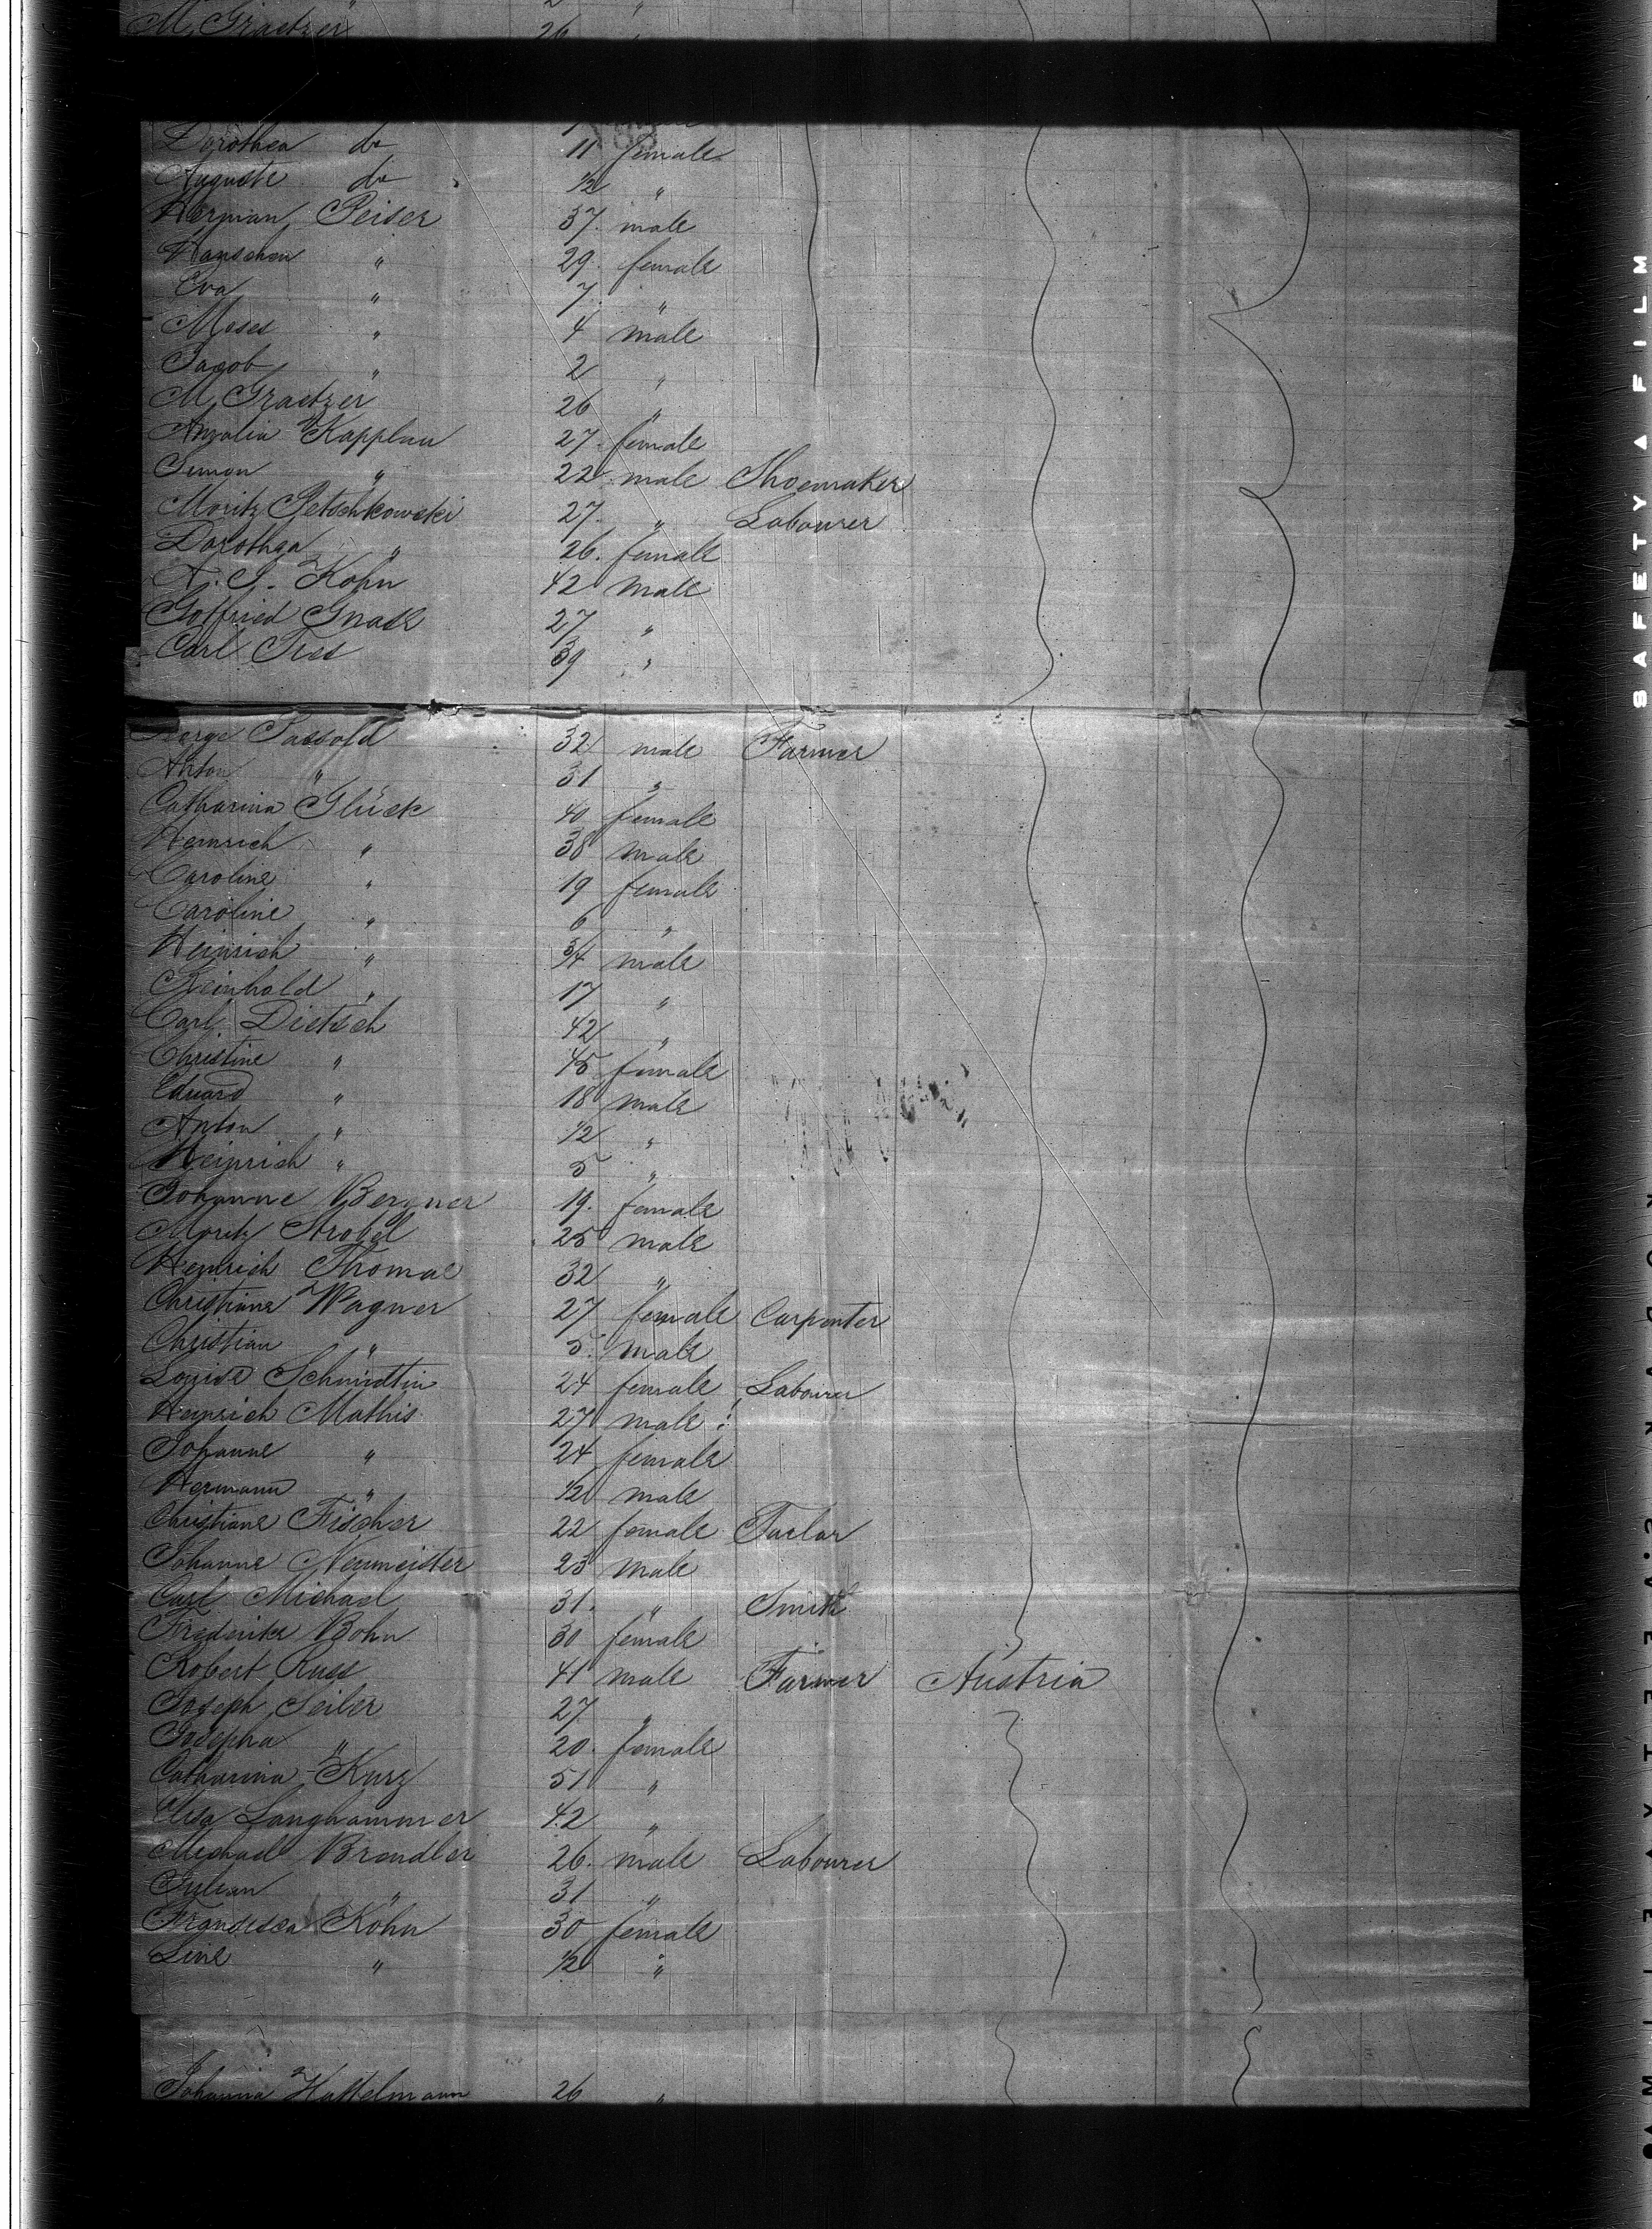 M. Graetzer 26 "
Dorothea do 11 female
Auguste do 1/2 "
Herman Peiser 37 male
Hanschen " 29 female
Eva " 7 "
Moses " 4 male
Jacob " 2 "
M. Graetzer 26 "
Amalia Kapplan 27 female
Simon " 22 male Shoemaker
Moritz Petschkowski 27 " Labourer
Dorothea " 26 female
A. J. Kohn 42 male
Gottfried Gnade 27 "
Carl Tres 39 "
Passold 32 male Farmer
Anton " 31 "
Catharina Glück 40 female
Heinrich " 38 male
Caroline " 19 female
Caroline " 6 "
Heinrich " 3/4 male
Reinhold " 17 "
Carl Dietsch 42 "
Christine " 45 female
Eduard " 18 male
Anton " 12 "
Heinrich " 5 "
Johanne Bergner 19 female
Moritz Strobel 25 male
Heinrich Thomae 32 "
Christiane Wagner 27 female Carpenter
Christian " 5 male
Louise Schmidtin 24 female Labourer
Heinrich Mathis 27 male "
Johanne " 24 female
Hermann " 1/2 male
Christiane Fischer 22 female Taelor
Johanne Neumeister 23 male
Carl Michael 31 " Smith
Frederike Bohn 30 female
Robert Russ 41 male Farmer Austria
Joseph Seiler 27 "
Josepha " 20 female
Catharina Kurz 51 "
Elisa Langhammer 42 "
Michael Brendler 26 male Labourer
Julian " 31 "
Francisca Kohn 30 female
Line " 1/2 "
Johanna Hattelmann 26 "
SAFETY A FILM